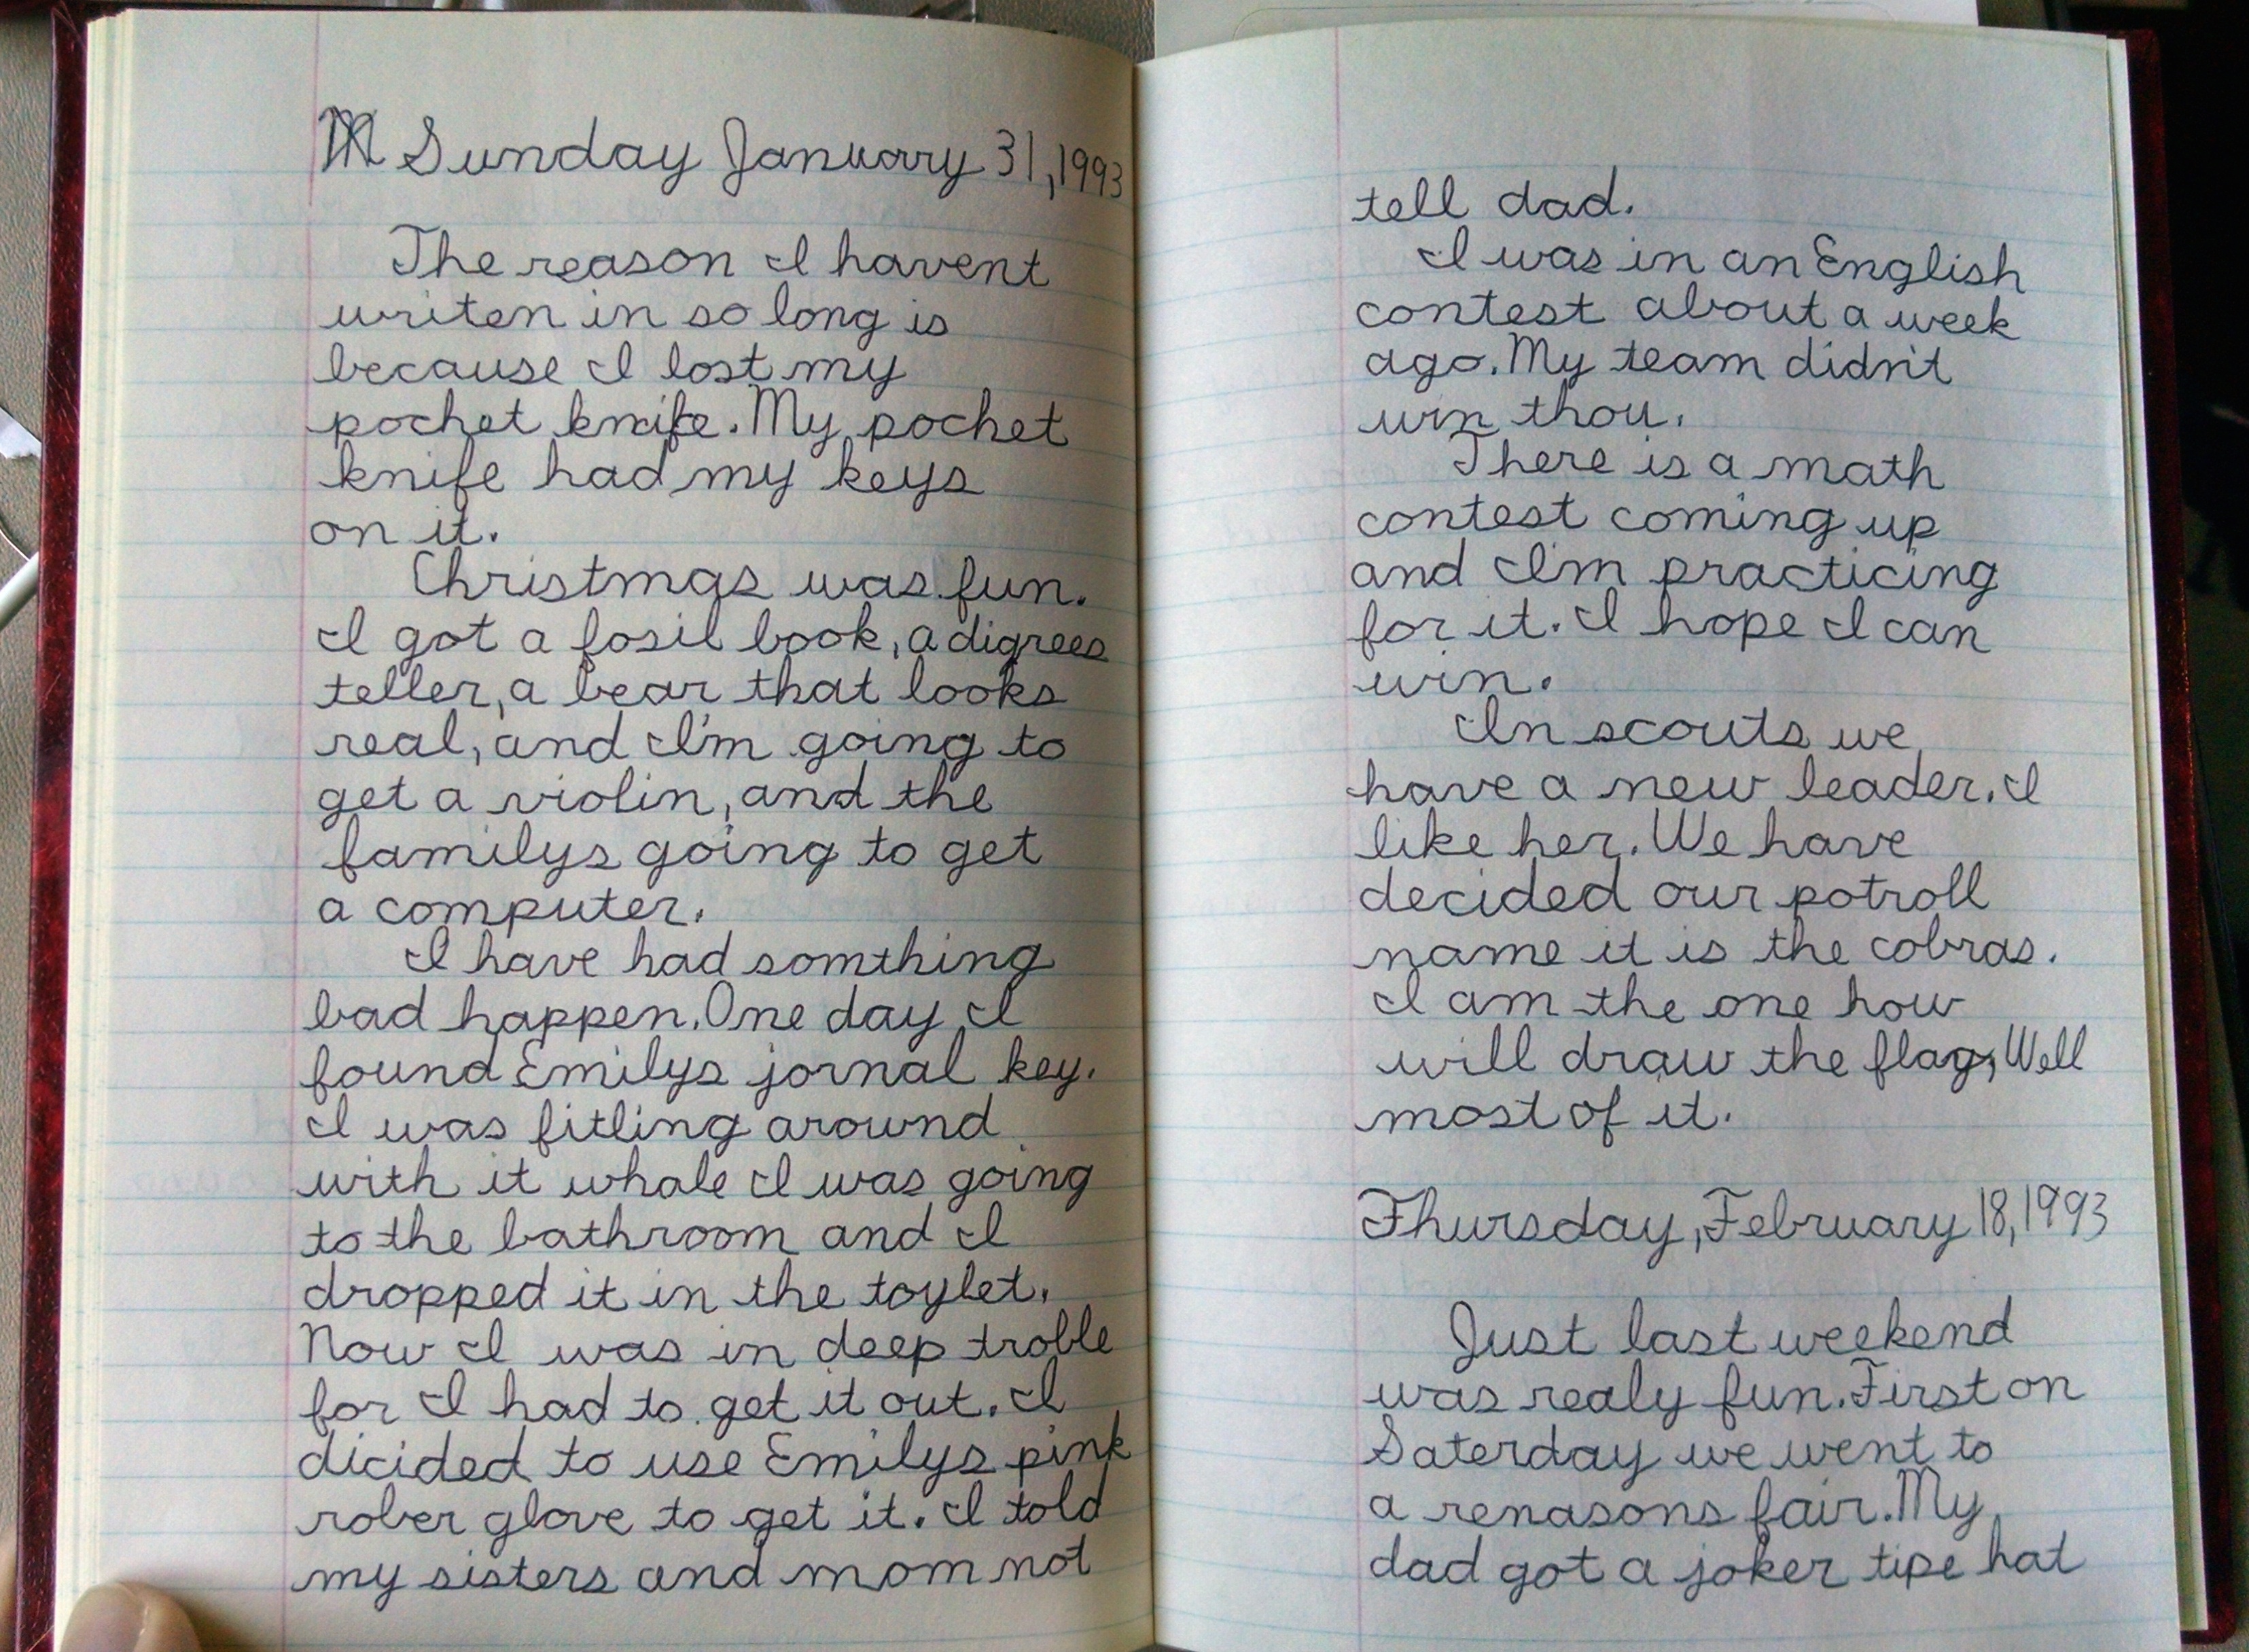 Sunday January 31, 1993
The reason I havent
writen in so long is
because I lost my
pochet knife. My pochet
knife had my keys
on it.
Christmas was fun.
I got a fosil book, a digrees
teller, a bear that looks
real, and I'm going to
get a violin, and the
familys going to get
a computer.
I have had somthing
bad happen. One day I
found Emilys jornal key.
I was fitling around
with it whale I was going
to the bathroom and I
dropped it in the toylet.
Now I was in deep troble
for I had to get it out. I
dicided to use Emilys pink
rober glove to get it. I told
my sisters and mom not
tell dad.
I was in an English
contest about a week
ago. My team didn't
win thou.
There is a math
contest coming up
and I'm practicing
for it. I hope I can
win.
In scouts we
have a new leader. I
like her. We have
decided our potroll
name it is the cobras.
I am the one how
will draw the flag, Well
most of it.
Thursday, February 18, 1993
Just last weekend
was realy fun. First on
Saterday we went to
a renasons fair. My
dad got a joker tipe hat